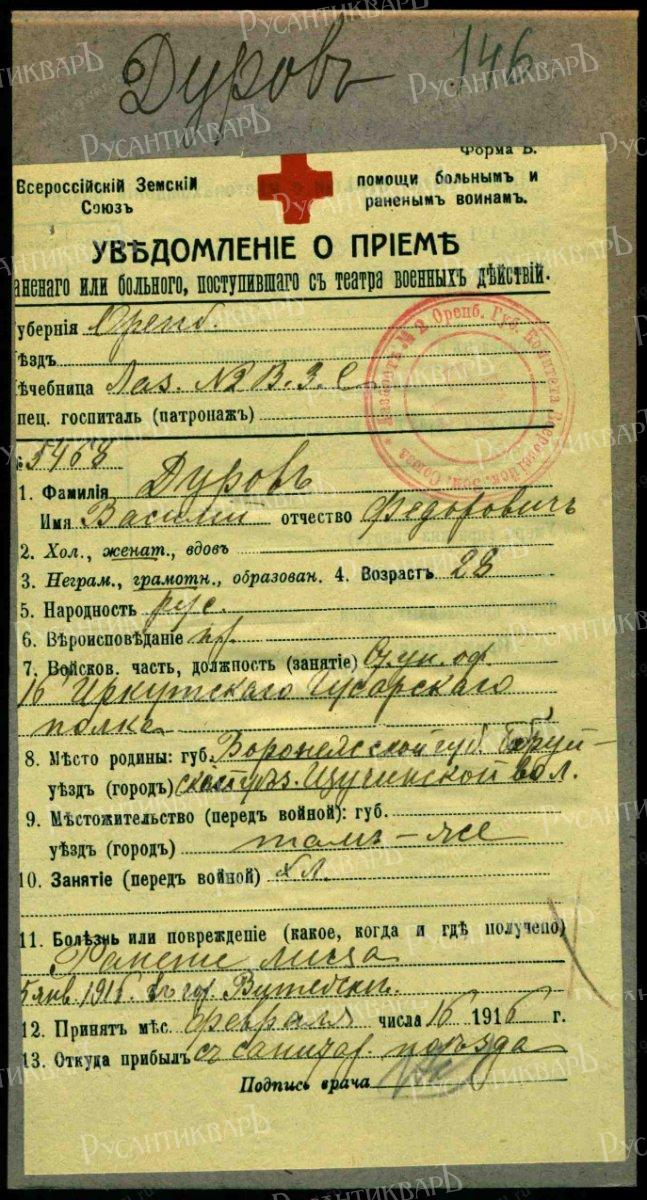 Дуровъ 146
Форма В.
Всероссійскій Земскій Союзъ
помощи больнымъ и раненымъ воинамъ.
УВѢДОМЛЕНІЕ О ПРІЕМѢ
аненаго или больного, поступившаго съ театра военныхъ дѣйствій.
убернія Оренб.
ѣздъ
ѣчебница Лаз. №2 В. З. С
пец. госпиталь (патронажъ)
№ 5468
1. Фамилія Дуровъ
Имя Василій отчество Федоровичъ
2. Хол., женат., вдовъ
3. Неграм., грамотн., образован. 4. Возрастъ 28
5. Народность рус.
6. Вѣроисповѣданіе пр.
7. Войсков. часть, должность (занятіе) ун. оф.
16 Иркутскаго Гусарскаго
полка
8. Мѣсто родины: губ. Воронежской губ.
уѣздъ (городъ) Щучинской вол.
9. Мѣстожительство (передъ войной): губ.
уѣздъ (городъ) тамъ-же
10. Занятіе (передъ войной) хл.
11. Болѣзнь или поврежденіе (какое, когда и гдѣ получено)
5 янв. 1916.
12. Принятъ мѣс. февраля числа 16 1916 г.
13. Откуда прибылъ съ санитар. поѣзда
Подпись врача
РусАнтикварЪ